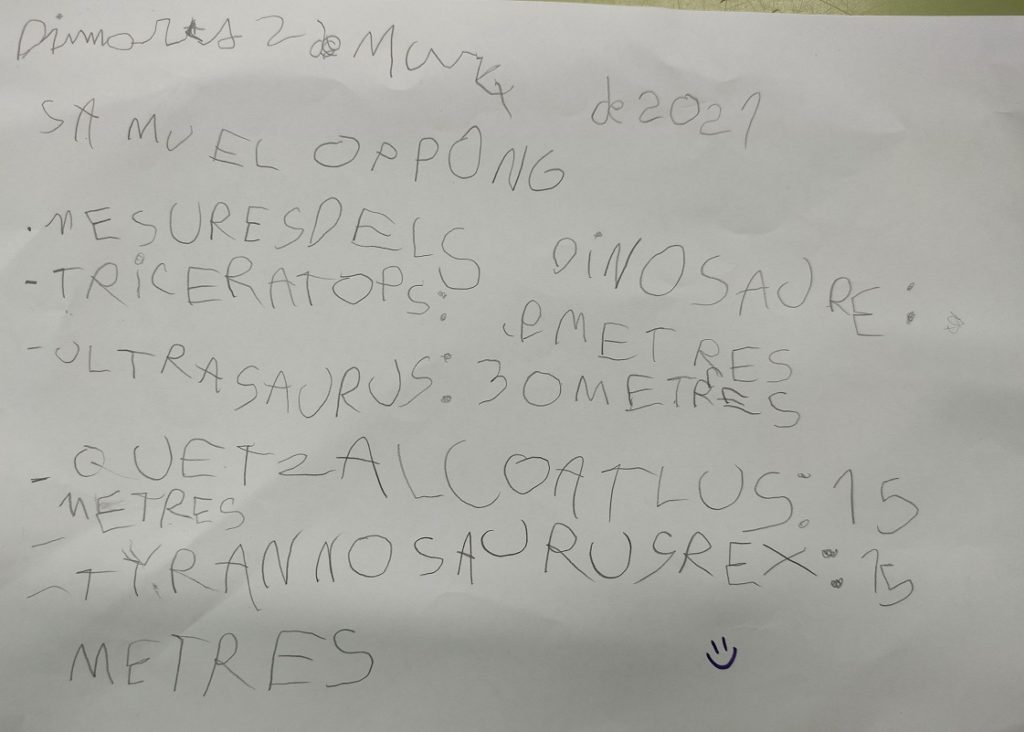 Dimarts 2 de Març de 2021
SAMUEL OPPONG
· MESURES DELS DINOSAURE:
- TRICERATOPS: METRES
- ULTRASAURUS: 30 METRES
- QUETZALCOATLUS: 15
METRES
- TYRANNOSAURUS REX: 15
METRES